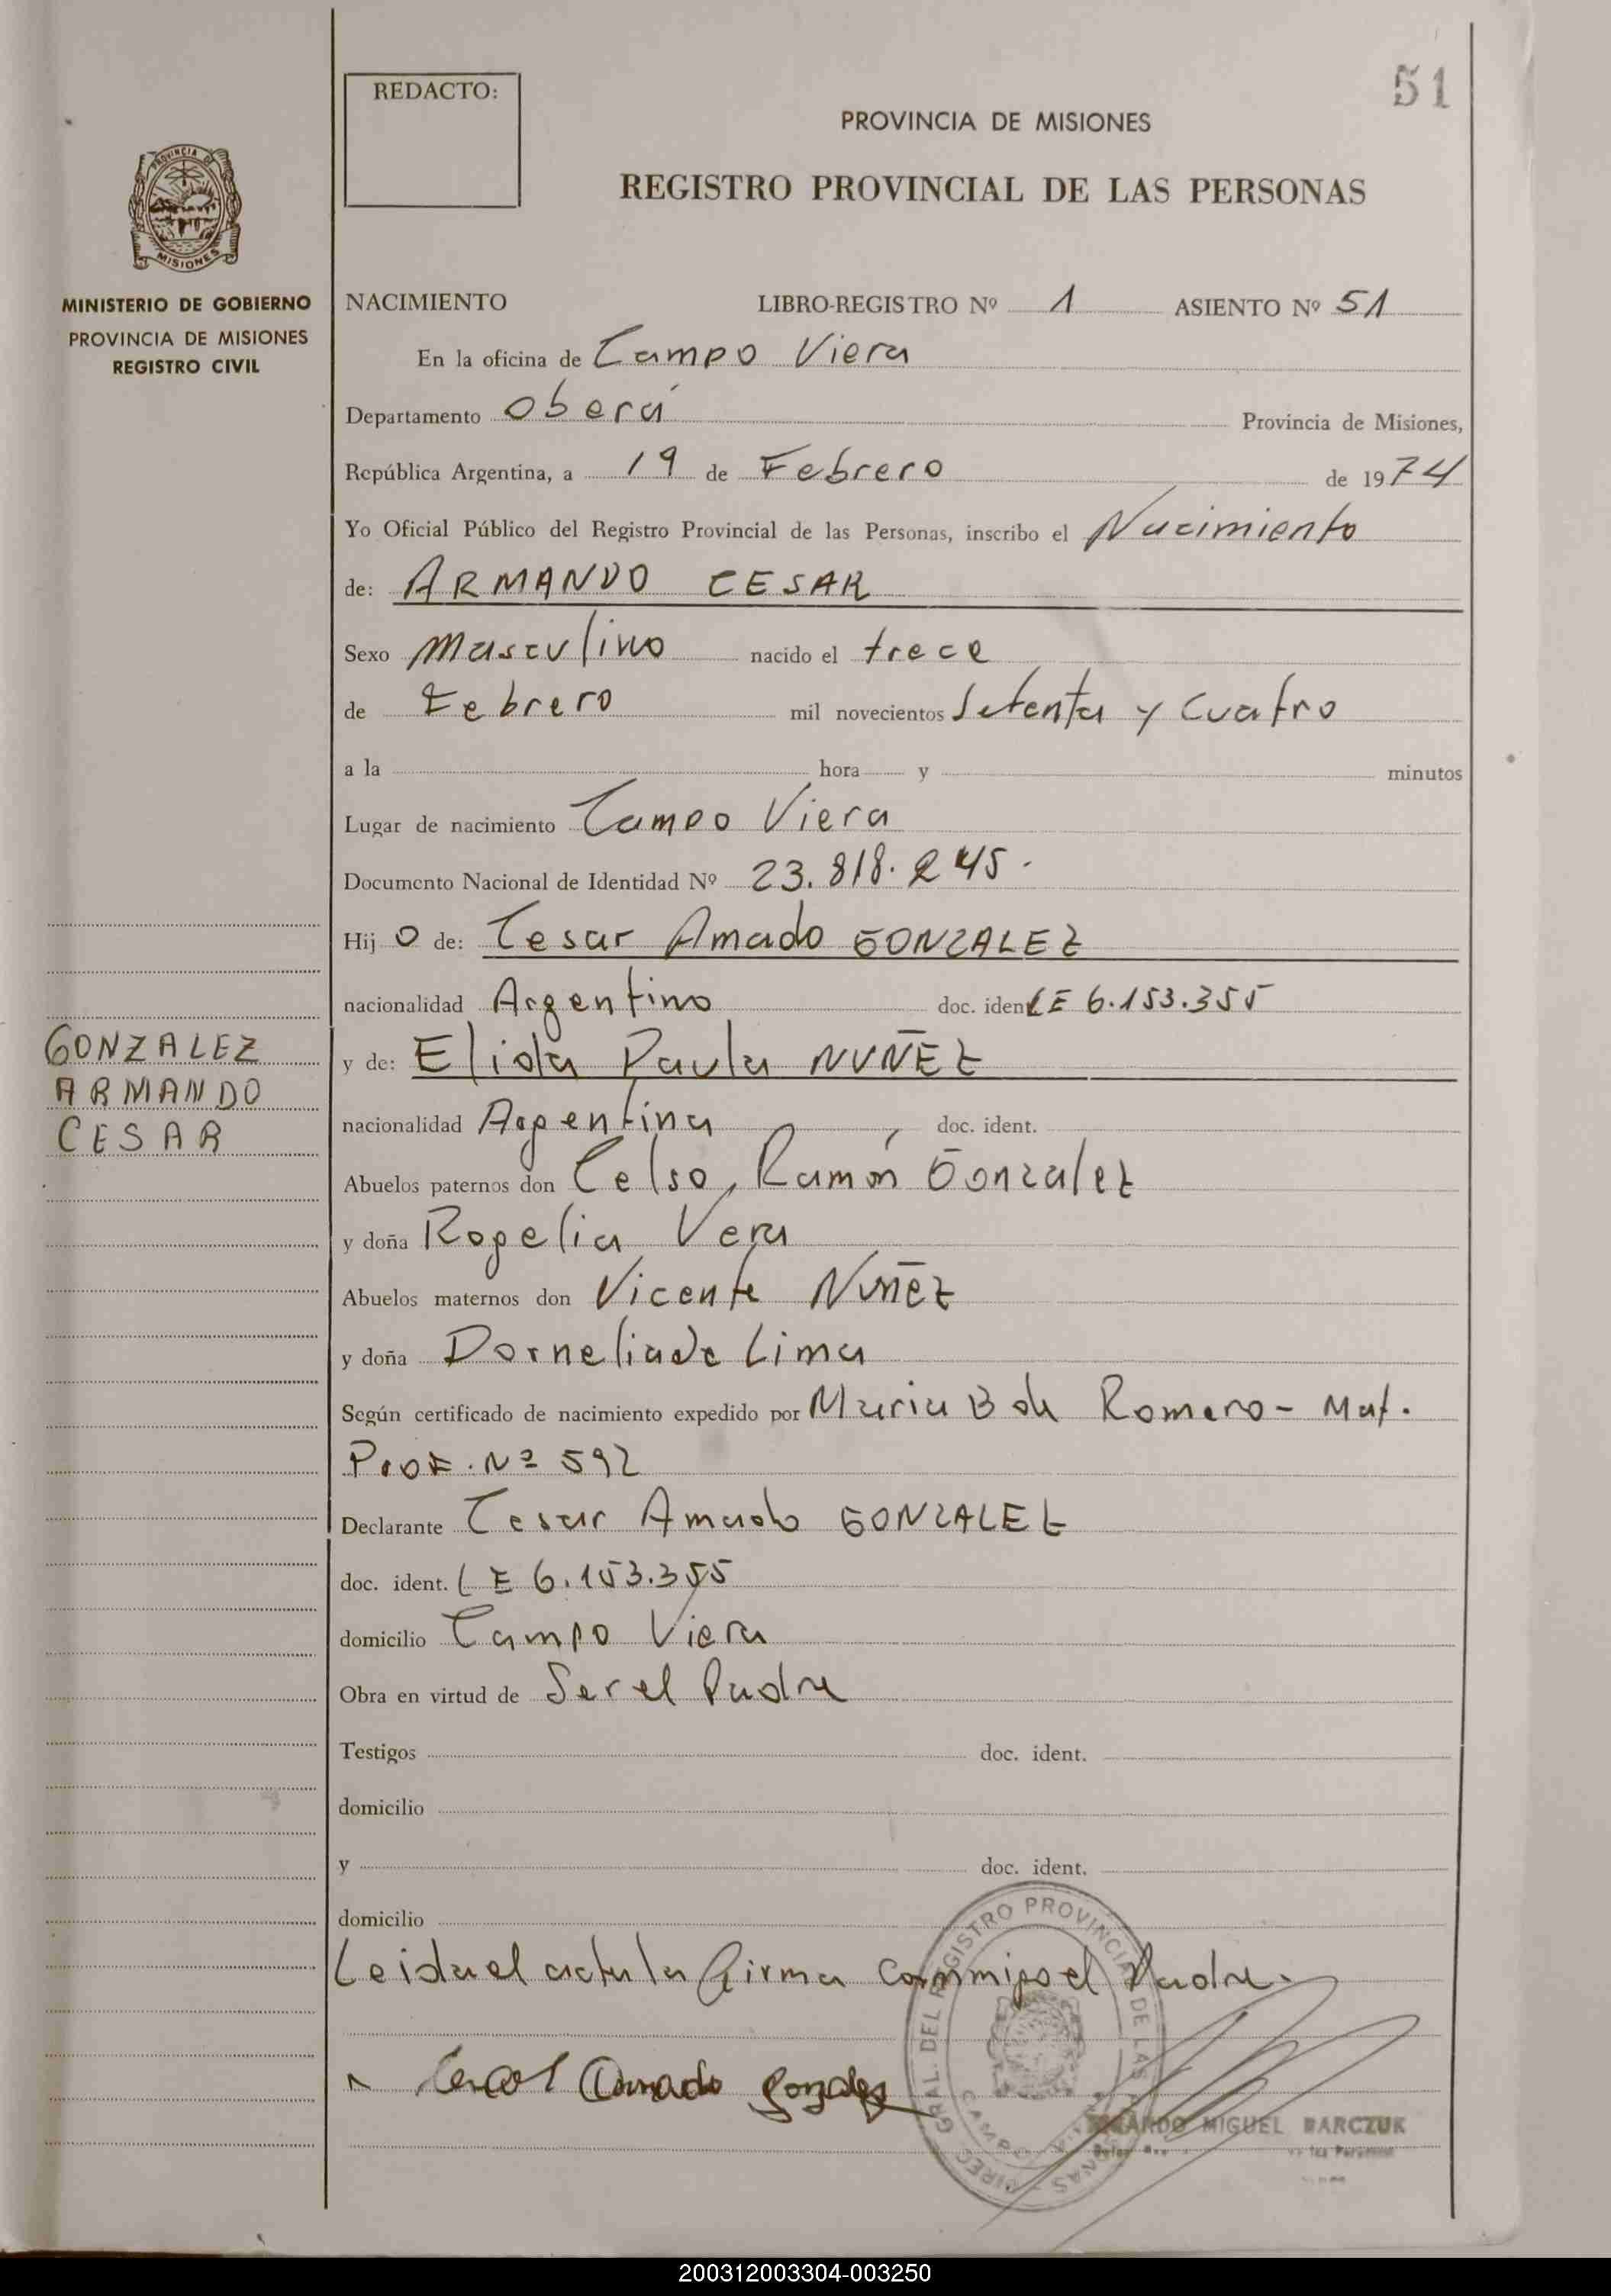 51
REDACTO:
PROVINCIA DE MISIONES
REGISTRO PROVINCIAL DE LAS PERSONAS
PROVINCIA DE
MISIONES
MINISTERIO DE GOBIERNO
PROVINCIA DE MISIONES
REGISTRO CIVIL
GONZALEZ
ARMANDO
CESAR
NACIMIENTO LIBRO-REGISTRO Nº 1 ASIENTO Nº 51
En la oficina de Campo Viera
Departamento Oberá Provincia de Misiones,
República Argentina, a 19 de Febrero de 1974
Yo Oficial Público del Registro Provincial de las Personas, inscribo el Nacimiento
de: ARMANDO CESAR
Sexo Masculino nacido el trece
de Febrero mil novecientos Setenta y Cuatro
a la hora y minutos
Lugar de nacimiento Campo Viera
Documento Nacional de Identidad Nº 23.818.245.
Hijo de: Cesar Amado GONZALEZ
nacionalidad Argentino doc. ident LE 6.153.355
y de: Elida Paula NUÑEZ
nacionalidad Argentina, doc. ident.
Abuelos paternos don Celso, Ramón Gonzalez
y doña Rogelia Vera
Abuelos maternos don Vicente Nuñez
y doña Dorneliade Lima
Según certificado de nacimiento expedido por Maria B de Romero - Mat.
Prof. Nº 592
Declarante Cesar Amado GONZALEZ
doc. ident. LE 6.153.355
domicilio Campo Viera
Obra en virtud de Ser el Padre
Testigos doc. ident.
domicilio
y doc. ident.
domicilio
Leida el acta la firma conmigo el Padre.
Cesar Amado Gonzalez
DIREC. GRAL. DEL REGISTRO PROVINCIAL DE LAS PERSONAS
CAMPO VIERA
MIGUEL BARCZUK
200312003304-003250